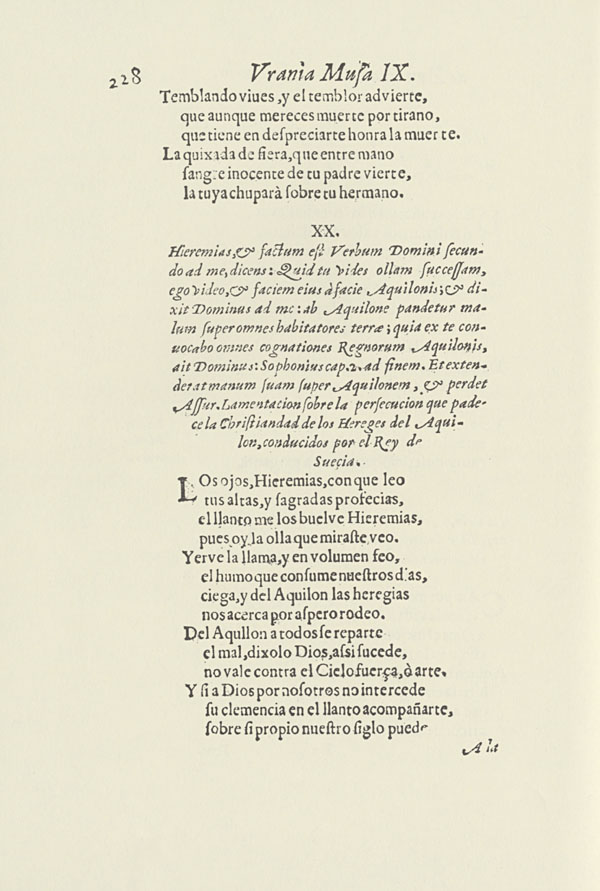 228 Vrania Musa IX.
Temblando viues, y el temblor advierte,
que aunque mereces muerte por tirano,
que tiene en despreciarte honra la muerte.
La quixada de fiera, que entre mano
sangre inocente de tu padre vierte,
la tuya chuparà sobre tu hermano.
XX.
Hieremias, & factum est Verbum Domini secun-
do ad me, dicens: Quid tu vides ollam successam,
ego video, & faciem eius à facie Aquilonis; & di-
xit Dominus ad me: ab Aquilone pandetur ma-
lum super omnes habitatores terræ; quia ex te con-
uocabo omnes cognationes Regnorum Aquilonis,
ait Dominus: Sophonius cap. 2. ad finem. Et exten-
derat manum suam super Aquilonem, & perdet
Assur. Lamentacion sobre la persecucion que pade-
ce la Christiandad de los Hereges del Aqui-
lon, conducidos por el Rey de
Suecia.
LOs ojos, Hieremias, con que leo
tus altas, y sagradas profecias,
el llanto me los buelve Hieremias,
pues oy la olla que miraste veo.
Yerve la llama, y en volumen feo,
el humo que consume nuestros dias,
ciega, y del Aquilon las heregias
nos acerca por aspero rodeo.
Del Aqullon a todos se reparte
el mal, dixolo Dios, assi sucede,
no vale contra el Cielo fuerça, ò arte.
Y si a Dios por nosotros no intercede
su clemencia en el llanto acompañarte,
sobre si propio nuestro siglo puede
A la